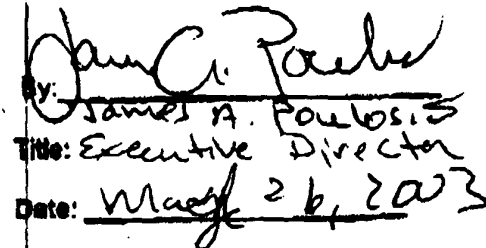 By: James A.
James A.
Title: Executive Director
Date: March 26, 2003